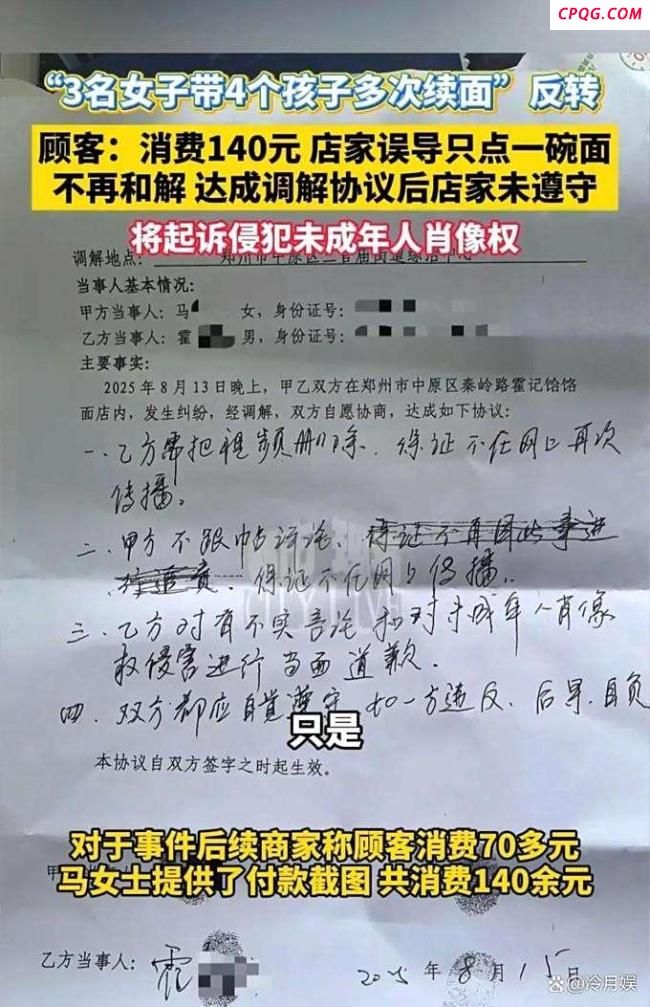 CPQG.COM
“3名女子带4个孩子多次续面”反转
顾客：消费140元 店家误导只点一碗面
不再和解 达成调解协议后店家未遵守
将起诉侵犯未成年人肖像权
调解地点：
当事人基本情况：
甲方当事人：马 女，身份证号：
乙方当事人：霍 男，身份证号：
主要事实：
2025年8月13日晚上，甲乙双方在郑州市中原区秦岭路霍记饸饹
面店内，发生纠纷，经调解，双方自愿协商，达成如下协议：
一、乙方需把视频删除、保证不在网上再次
传播。
二、甲方不跟帖评论、保证不再因此事进
行追责、保证不在网上传播。
三、乙方对有不实言论和对未成年人肖像
权侵害进行当面道歉．
四、双方都应自觉遵守 如一方违反、后果自负
只是
本协议自双方签字之时起生效。
对于事件后续商家称顾客消费70多元
马女士提供了付款截图 共消费140余元
甲
乙方当事人：霍
2025年8月15日
@冷月娱